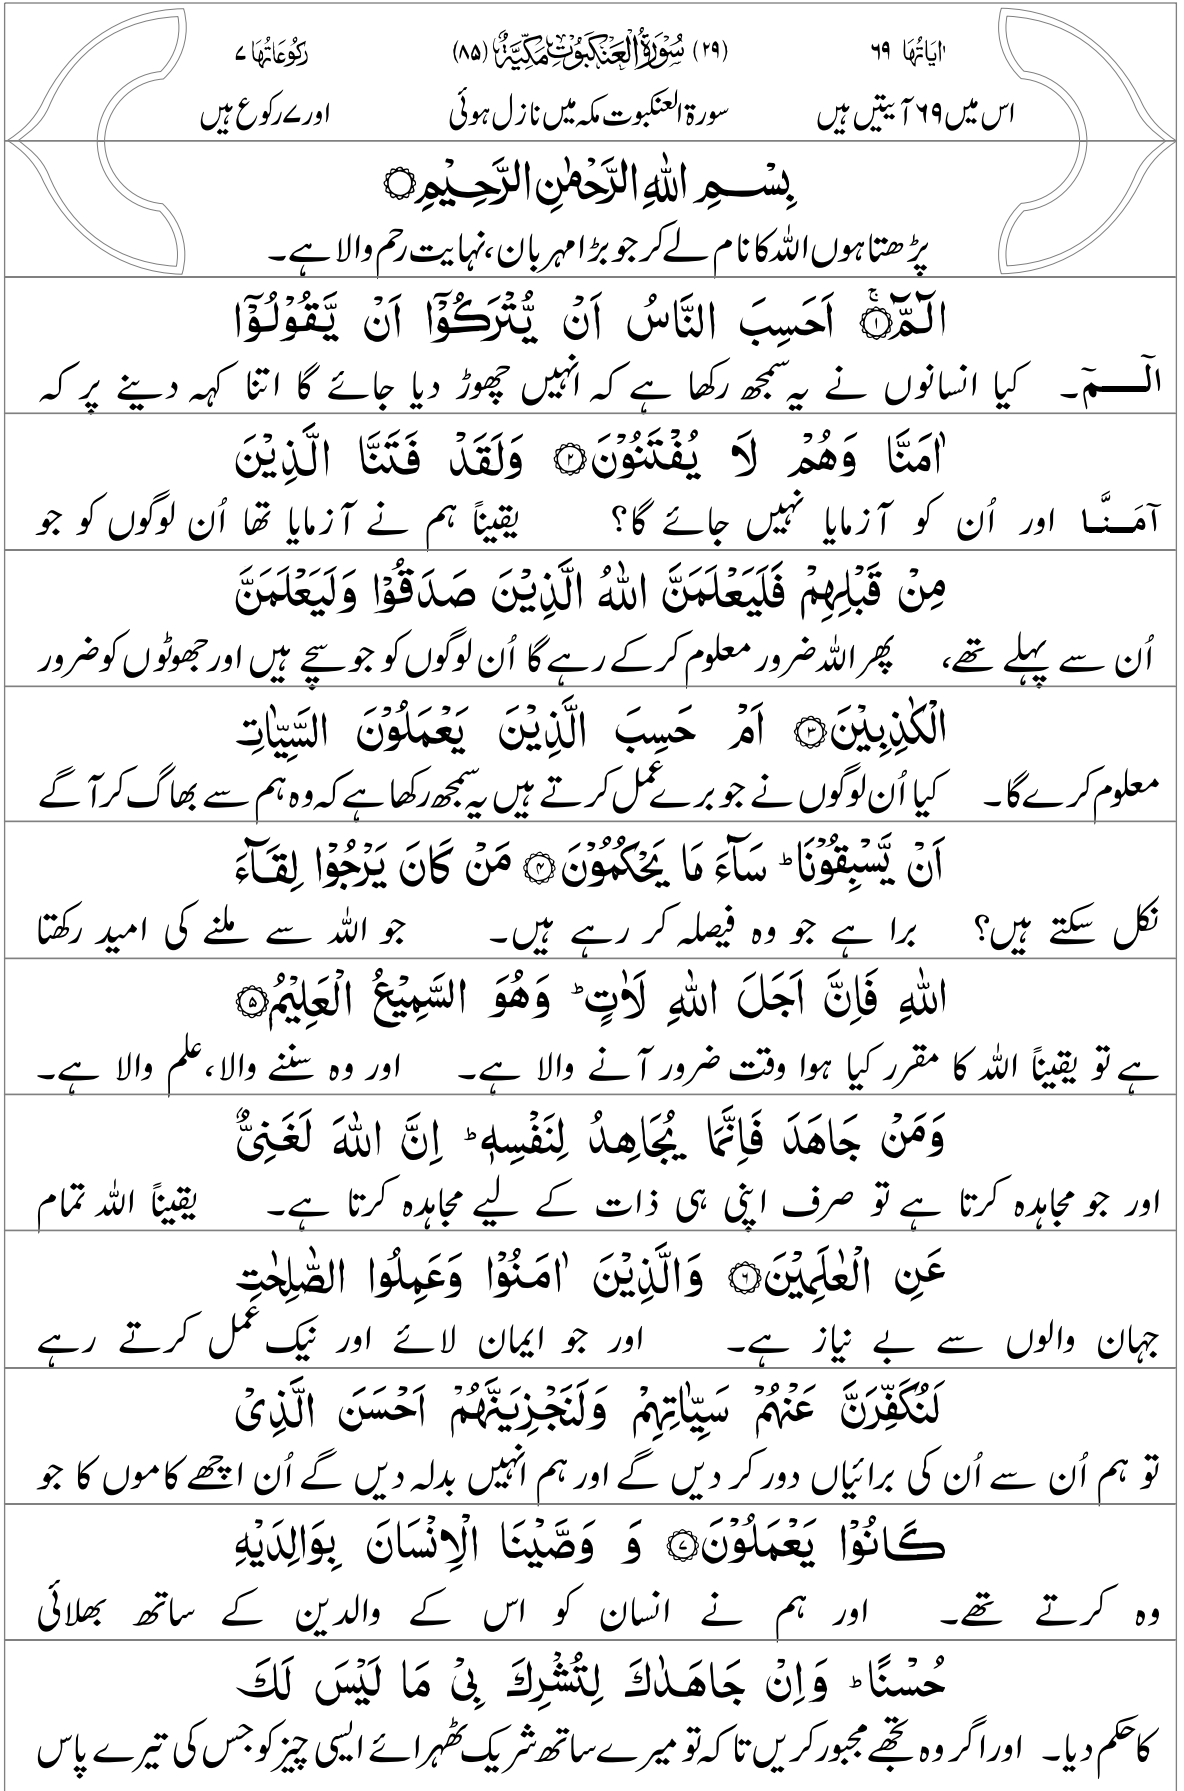 اٰيَاتُهَا ٦٩ (٢٩) سُوْرَةُ الْعَنْكَبُوْتِ مَكِّيَّةٌ (٨٥) رُكُوْعَاتُهَا ٧
اس میں ۶۹ آیتیں ہیں سورۃ العنکبوت مکہ میں نازل ہوئی اور ۷ رکوع ہیں
بِسْمِ اللهِ الرَّحْمٰنِ الرَّحِيْمِ
پڑھتا ہوں اللہ کا نام لے کر جو بڑا مہربان، نہایت رحم والا ہے۔
الٓمّٓ ۚ۝۱ اَحَسِبَ النَّاسُ اَنْ يُّتْرَكُوْٓا اَنْ يَّقُوْلُوْٓا
الٓـمٓ۔ کیا انسانوں نے یہ سمجھ رکھا ہے کہ انہیں چھوڑ دیا جائے گا اتنا کہہ دینے پر کہ
اٰمَنَّا وَهُمْ لَا يُفْتَنُوْنَ ۝۲ وَلَقَدْ فَتَنَّا الَّذِيْنَ
آمَـنَّـا اور اُن کو آزمایا نہیں جائے گا؟ یقیناً ہم نے آزمایا تھا اُن لوگوں کو جو
مِنْ قَبْلِهِمْ فَلَيَعْلَمَنَّ اللهُ الَّذِيْنَ صَدَقُوْا وَلَيَعْلَمَنَّ
اُن سے پہلے تھے، پھر اللہ ضرور معلوم کر کے رہے گا اُن لوگوں کو جو سچے ہیں اور جھوٹوں کو ضرور
الْكٰذِبِيْنَ ۝۳ اَمْ حَسِبَ الَّذِيْنَ يَعْمَلُوْنَ السَّيِّاٰتِ
معلوم کرے گا۔ کیا اُن لوگوں نے جو برے عمل کرتے ہیں یہ سمجھ رکھا ہے کہ وہ ہم سے بھاگ کر آگے
اَنْ يَّسْبِقُوْنَا ؕ سَآءَ مَا يَحْكُمُوْنَ ۝۴ مَنْ كَانَ يَرْجُوْا لِقَآءَ
نکل سکتے ہیں؟ برا ہے جو وہ فیصلہ کر رہے ہیں۔ جو اللہ سے ملنے کی امید رکھتا
اللهِ فَاِنَّ اَجَلَ اللهِ لَاٰتٍ ؕ وَهُوَ السَّمِيْعُ الْعَلِيْمُ ۝۵
ہے تو یقیناً اللہ کا مقرر کیا ہوا وقت ضرور آنے والا ہے۔ اور وہ سننے والا، علم والا ہے۔
وَمَنْ جَاهَدَ فَاِنَّمَا يُجَاهِدُ لِنَفْسِهٖ ؕ اِنَّ اللهَ لَغَنِيٌّ
اور جو مجاہدہ کرتا ہے تو صرف اپنی ہی ذات کے لیے مجاہدہ کرتا ہے۔ یقیناً اللہ تمام
عَنِ الْعٰلَمِيْنَ ۝۶ وَالَّذِيْنَ اٰمَنُوْا وَعَمِلُوا الصّٰلِحٰتِ
جہان والوں سے بے نیاز ہے۔ اور جو ایمان لائے اور نیک عمل کرتے رہے
لَنُكَفِّرَنَّ عَنْهُمْ سَيِّاٰتِهِمْ وَلَنَجْزِيَنَّهُمْ اَحْسَنَ الَّذِيْ
تو ہم اُن سے اُن کی برائیاں دور کر دیں گے اور ہم انہیں بدلہ دیں گے اُن اچھے کاموں کا جو
كَانُوْا يَعْمَلُوْنَ ۝۷ وَ وَصَّيْنَا الْاِنْسَانَ بِوَالِدَيْهِ
وہ کرتے تھے۔ اور ہم نے انسان کو اس کے والدین کے ساتھ بھلائی
حُسْنًا ؕ وَاِنْ جَاهَدٰكَ لِتُشْرِكَ بِيْ مَا لَيْسَ لَكَ
کا حکم دیا۔ اور اگر وہ تجھے مجبور کریں تاکہ تو میرے ساتھ شریک ٹھہرائے ایسی چیز کو جس کی تیرے پاس